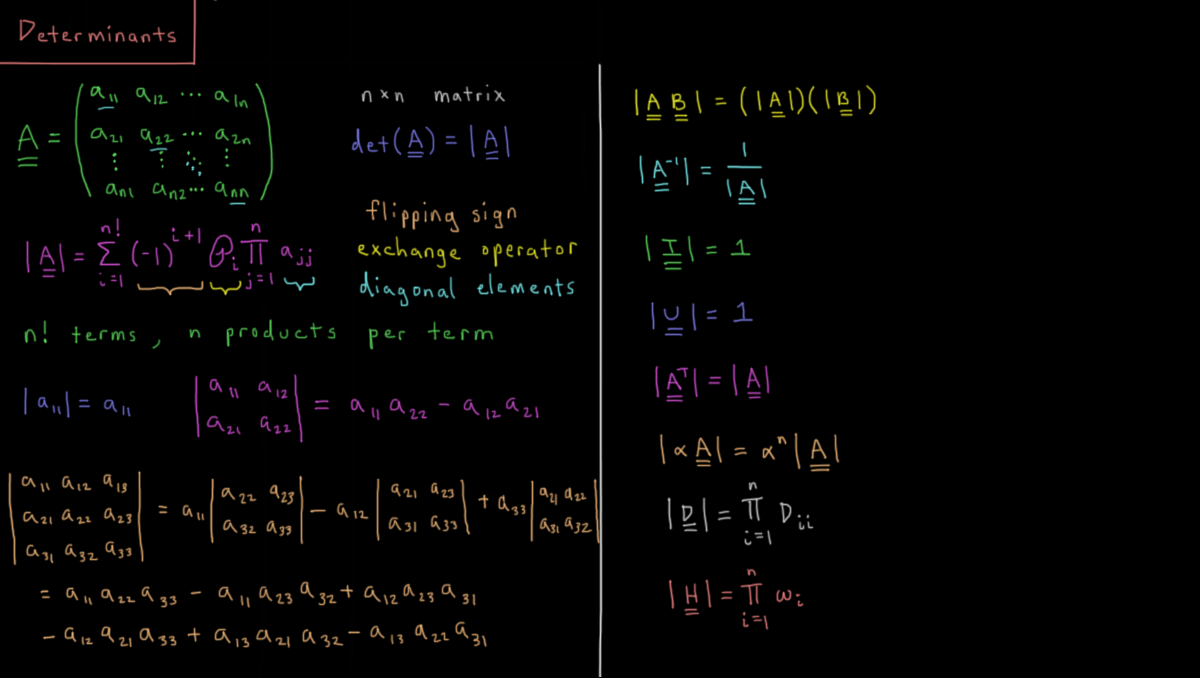 Determinants
A = ( a₁₁ a₁₂ ⋯ a₁ₙ
a₂₁ a₂₂ ⋯ a₂ₙ
⋮ ⋮ ⋱ ⋮
aₙ₁ aₙ₂ ⋯ aₙₙ )
n×n matrix
det(A) = |A|
|A| = Σ_{i=1}^{n!} (-1)^{i+1} 𝒫ᵢ ∏_{j=1}^{n} aⱼⱼ
flipping sign
exchange operator
diagonal elements
n! terms, n products per term
|a₁₁| = a₁₁
| a₁₁ a₁₂
a₂₁ a₂₂ | = a₁₁ a₂₂ - a₁₂ a₂₁
| a₁₁ a₁₂ a₁₃
a₂₁ a₂₂ a₂₃
a₃₁ a₃₂ a₃₃ | = a₁₁ | a₂₂ a₂₃
a₃₂ a₃₃ | - a₁₂ | a₂₁ a₂₃
a₃₁ a₃₃ | + a₃₃ | a₂₁ a₂₂
a₃₁ a₃₂ |
= a₁₁ a₂₂ a₃₃ - a₁₁ a₂₃ a₃₂ + a₁₂ a₂₃ a₃₁
- a₁₂ a₂₁ a₃₃ + a₁₃ a₂₁ a₃₂ - a₁₃ a₂₂ a₃₁
|A B| = (|A|)(|B|)
|A⁻¹| = 1 / |A|
|I| = 1
|U| = 1
|Aᵀ| = |A|
|αA| = αⁿ|A|
|D| = ∏_{i=1}^{n} Dᵢᵢ
|H| = ∏_{i=1}^{n} ωᵢ